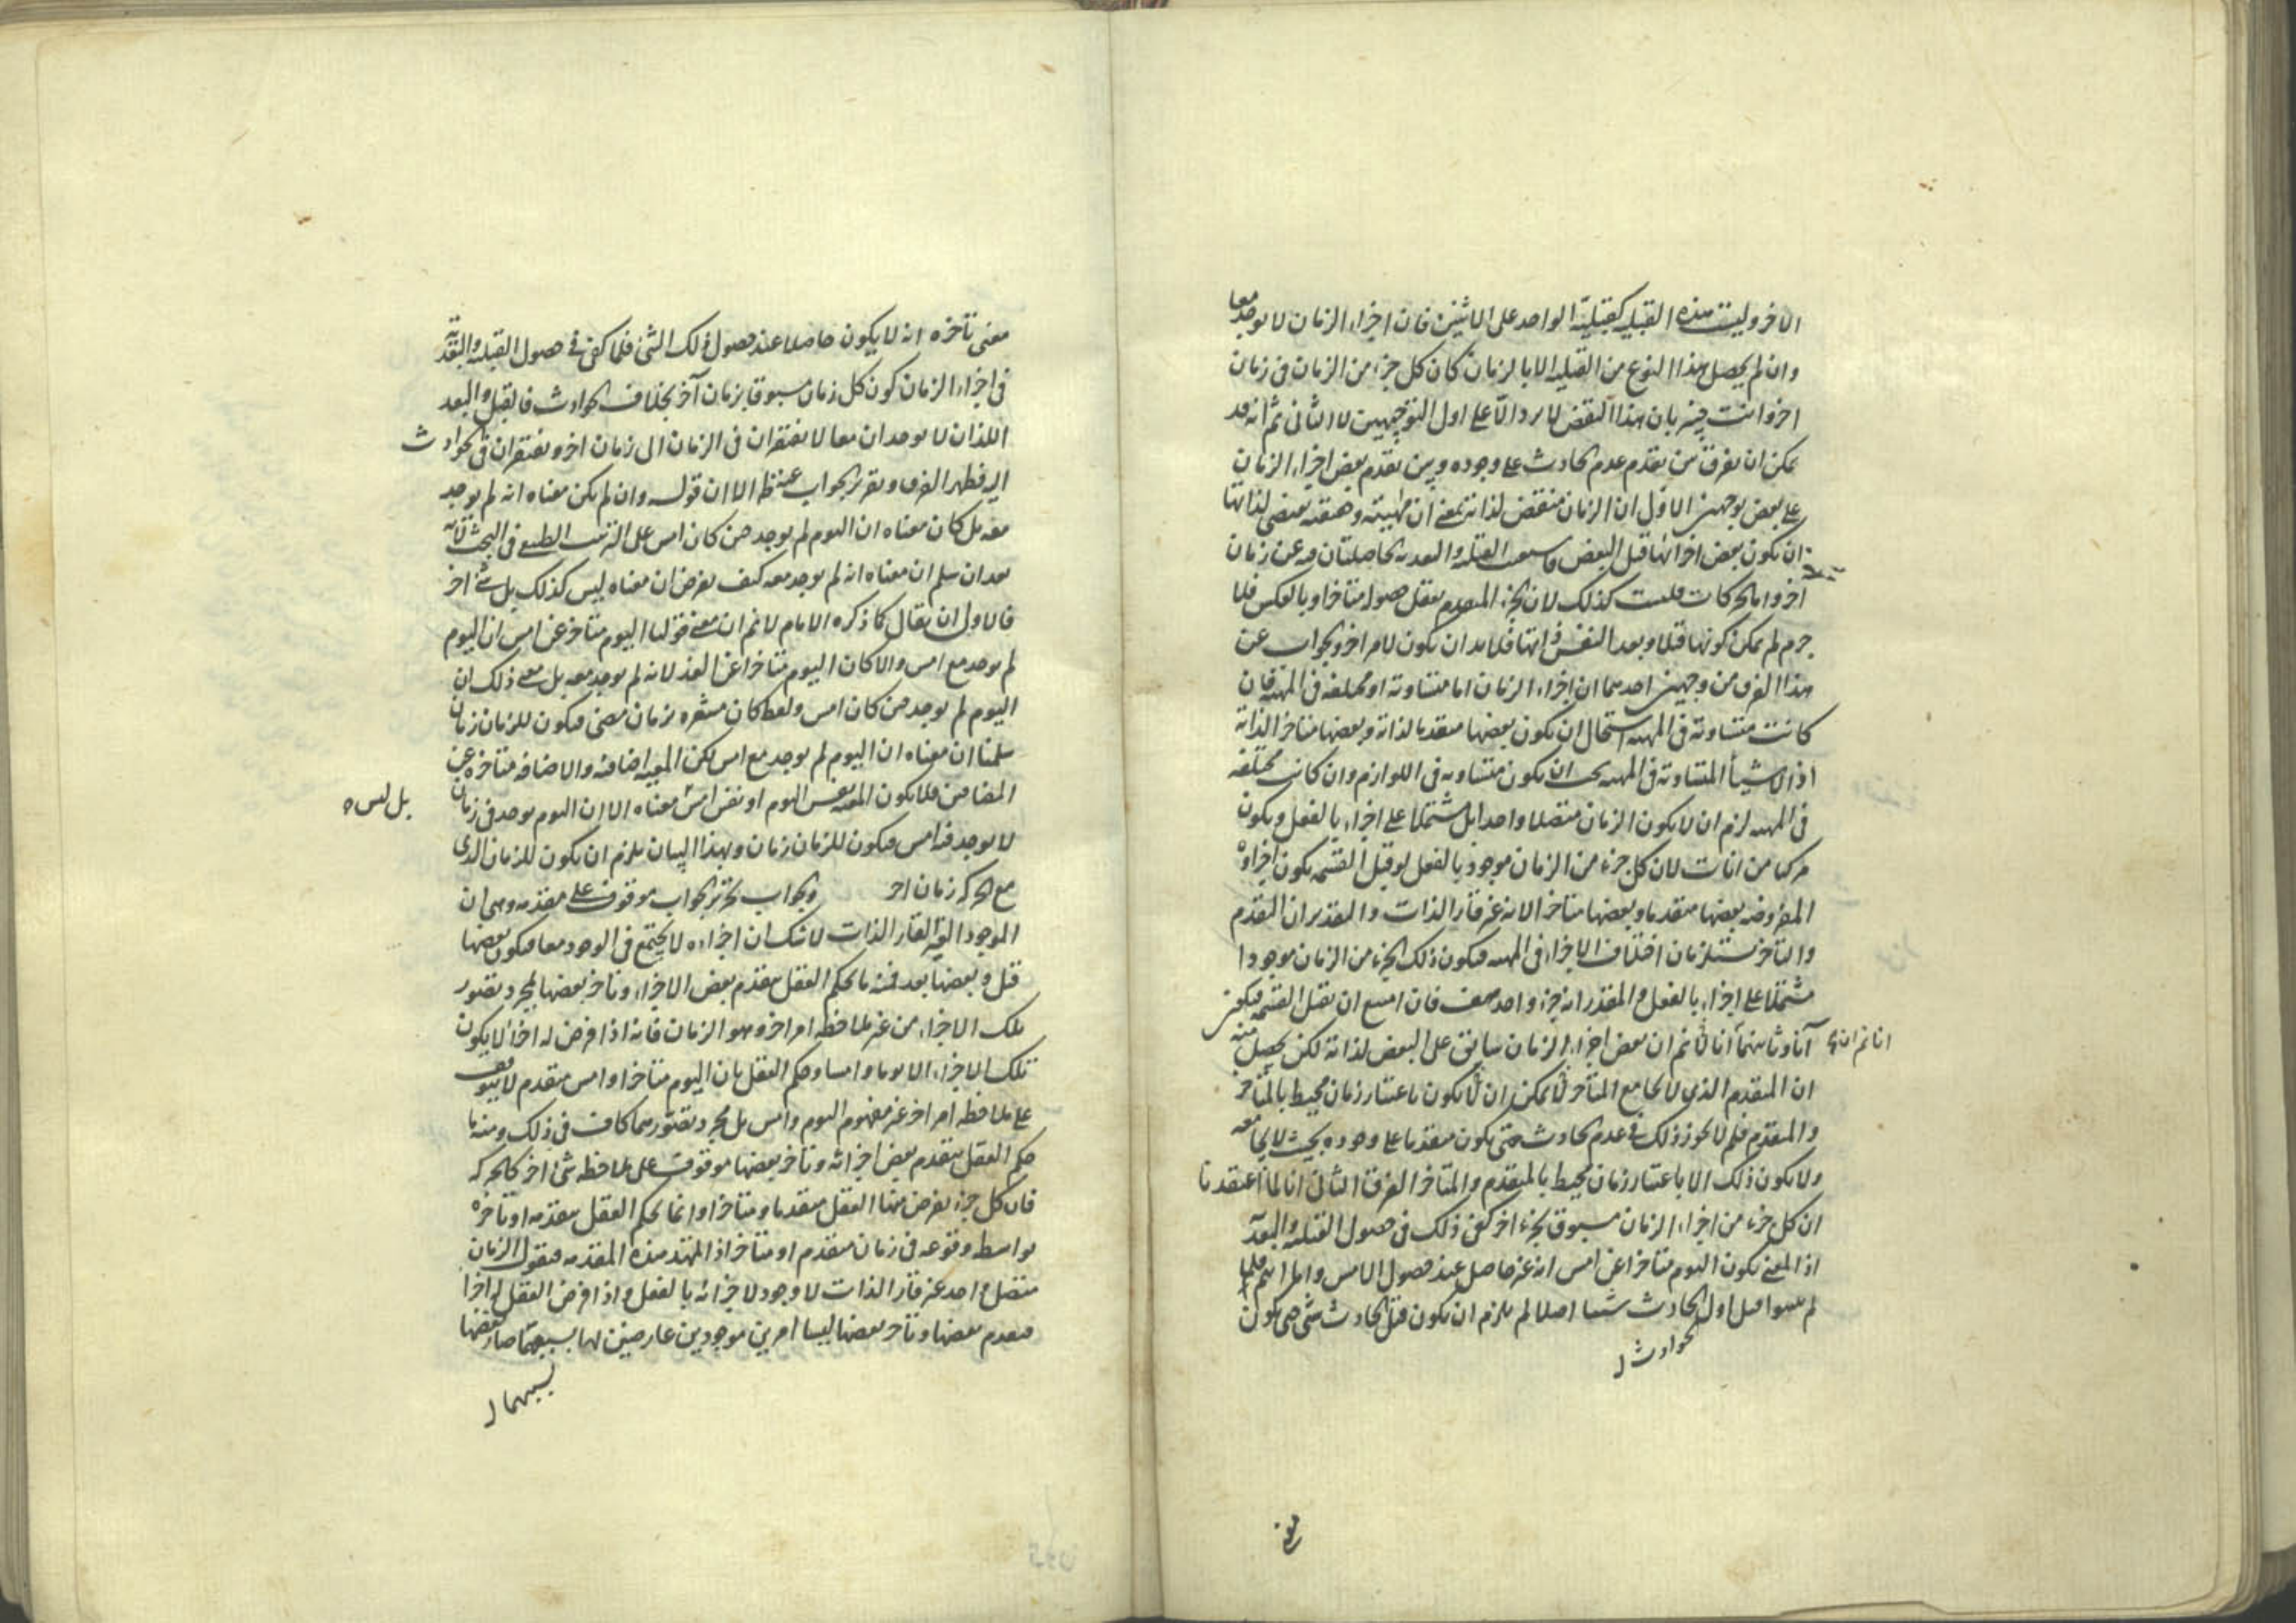 الاخر وليست هذه القبلية كقبلية الواحد على الاثنين فان اجزاء الزمان لا يوجد معا
وان لم يحصل هذا النوع من القبلية الا بالزمان كان كل جزء من الزمان فى زمان
اخر وانت خبير بان هذا النقض لا يرد الا على اول التوجيهين لا الثانى ثم انه قد
يمكن ان يفرق بين تقدم عدم الحادث على وجوده وبين تقدم بعض اجزاء الزمان
على بعض بوجهين الاول ان الزمان منقض لذاته بمعنى ان مهيته وحقيقته يقتضى لذاتها
ان يكون بعض اجزائها قبل البعض القبلية والبعدية الحاصلتان فيه عن زمان
اخر واما الحركات فليست كذلك لان الجزء المتقدم يعقل حصوله متاخرا وبالعكس فلا
جرم لم يمكن كونها قبلا وبعدا لنفس ذاتها فلا بد ان يكون لامر اخر والجواب عن
هذا الفرق من وجهين احدهما ان اجزاء الزمان اما متساوية او مختلفة فى المهية فان
كانت متساوية فى المهية استحال ان يكون بعضها متقدما لذاته وبعضها متاخرا لذاته
اذ الاشياء المتساوية فى المهية يجب ان يكون متساوية فى اللوازم وان كانت مختلفة
فى المهية لزم ان لا يكون الزمان متصلا واحدا بل مشتملا على اجزاء بالفعل ويكون
مركبا من انات لان كل جزء من الزمان موجود بالفعل لو قبل القسمة يكون اجزاؤه
المفروضة بعضها متقدما وبعضها متاخرا لانه غير قار الذات والتقدير ان التقدم
والتاخر يستلزمان اختلاف الاجزاء فى المهية فيكون ذلك الجزء من الزمان موجودا
مشتملا على اجزاء بالفعل والمقدر انه جزء واحد فان امتنع ان يقبل القسمة فيكون
آنا وثانيهما انا لا نم ان بعض اجزاء الزمان سابق على البعض لذاته لكن يحصل منه
انا نم ان
ان المتقدم الذى لا يجامع المتاخر لا يمكن ان لا يكون باعتبار زمان محيط بالمتاخر
والمتقدم فلم لا يجوز ذلك فى عدم الحادث حتى يكون متقدما على وجوده بحيث لا يجامعه
ولا يكون ذلك الا باعتبار زمان محيط بالمتقدم والمتاخر الفرق الثانى انا لما اعتقدنا
ان كل جزء من اجزاء الزمان مسبوق بجزء اخر كفى ذلك فى حصول القبلية والبعدية
اذ المعنى بكون اليوم متاخرا عن امس انه غير حاصل عند حصول الامس واما انتم فلما
لم تثبتوا قبل اول الحادث شيئا اصلا لم يلزم ان يكون قبل الحادث شئ حتى يكون
الحوادث ل
معنى تاخره انه لا يكون حاصلا عند حصول ذلك الشئ فلما كفى فى حصول القبلية والبعدية
فى اجزاء الزمان كون كل زمان مسبوقا بزمان آخر بخلاف الحوادث فالقبل والبعد
اللذان لا يوجدان معا لا يفتقران فى الزمان الى زمان اخر ويفتقران فى الحوادث
اليه فظهر الفرق وتقرير الجواب عنه ظ الا ان قوله وان لم يكن معناه انه لم يوجد
معه بل كان معناه ان اليوم لم يوجد حين كان امس على الترتيب الطبيعى فى البحث لانه
بعد ان سلم ان معناه انه لم يوجد معه كيف يفرض ان معناه ليس كذلك بل شئ اخر
فالاولى ان يقال كما ذكره الامام لا نم ان معنى قولنا اليوم متاخر عن امس ان اليوم
لم يوجد مع امس والا كان اليوم متاخرا عن الغد لانه لم يوجد معه بل معنى ذلك ان
اليوم لم يوجد حين كان امس ولفظ كان مشعرة بزمان مضى فيكون للزمان زمان
سلمنا ان معناه ان اليوم لم يوجد مع امس لكن المعية اضافة والاضافة متاخرة عن
المضافين فلا يكون المعية نفس اليوم او نفس امس معناه الا ان اليوم يوجد فى زمان
بل ليس
لا يوجد فيه امس فيكون للزمان زمان وبهذا البيان يلزم ان يكون للزمان الذى
مع الحركة زمان اخر والجواب تحرير الجواب موقوف على مقدمة وهى ان
الموجود الغير القار الذات لا شك ان اجزاءه لا يجتمع فى الوجود معا فيكون بعضها
قبل وبعضها بعد فمنه ما يحكم العقل بتقدم بعض الاجزاء وتاخر بعضها لمجرد تصور
تلك الاجزاء من غير ملاحظة امر اخر وهو الزمان فانه اذا فرض له اجزاء لا يكون
تلك الاجزاء الا يوما وامسا وحكم العقل بان اليوم متاخرا وامس متقدم لا يتوقف
على ملاحظة امر اخر غير مفهوم اليوم وامس بل مجرد تصورهما كاف فى ذلك ومنه ما
حكم العقل بتقدم بعض اجزائه وتاخر بعضها موقوف على ملاحظة شئ اخر كالحركة
فان كل جزء يفرض منها العقل متقدما ومتاخرا وانما يحكم العقل بتقدمه او تاخره
بواسطة وقوعه فى زمان متقدم او متاخر اذا تمهد هذه المقدمة فنقول الزمان
متصل واحد غير قار الذات لا وجود لاجزائه بالفعل واذا فرض العقل له اجزاء
فتقدم بعضها وتاخر بعضها ليسا امرين موجودين عارضين لها بسببهما صار بعضها
بسببهما ل